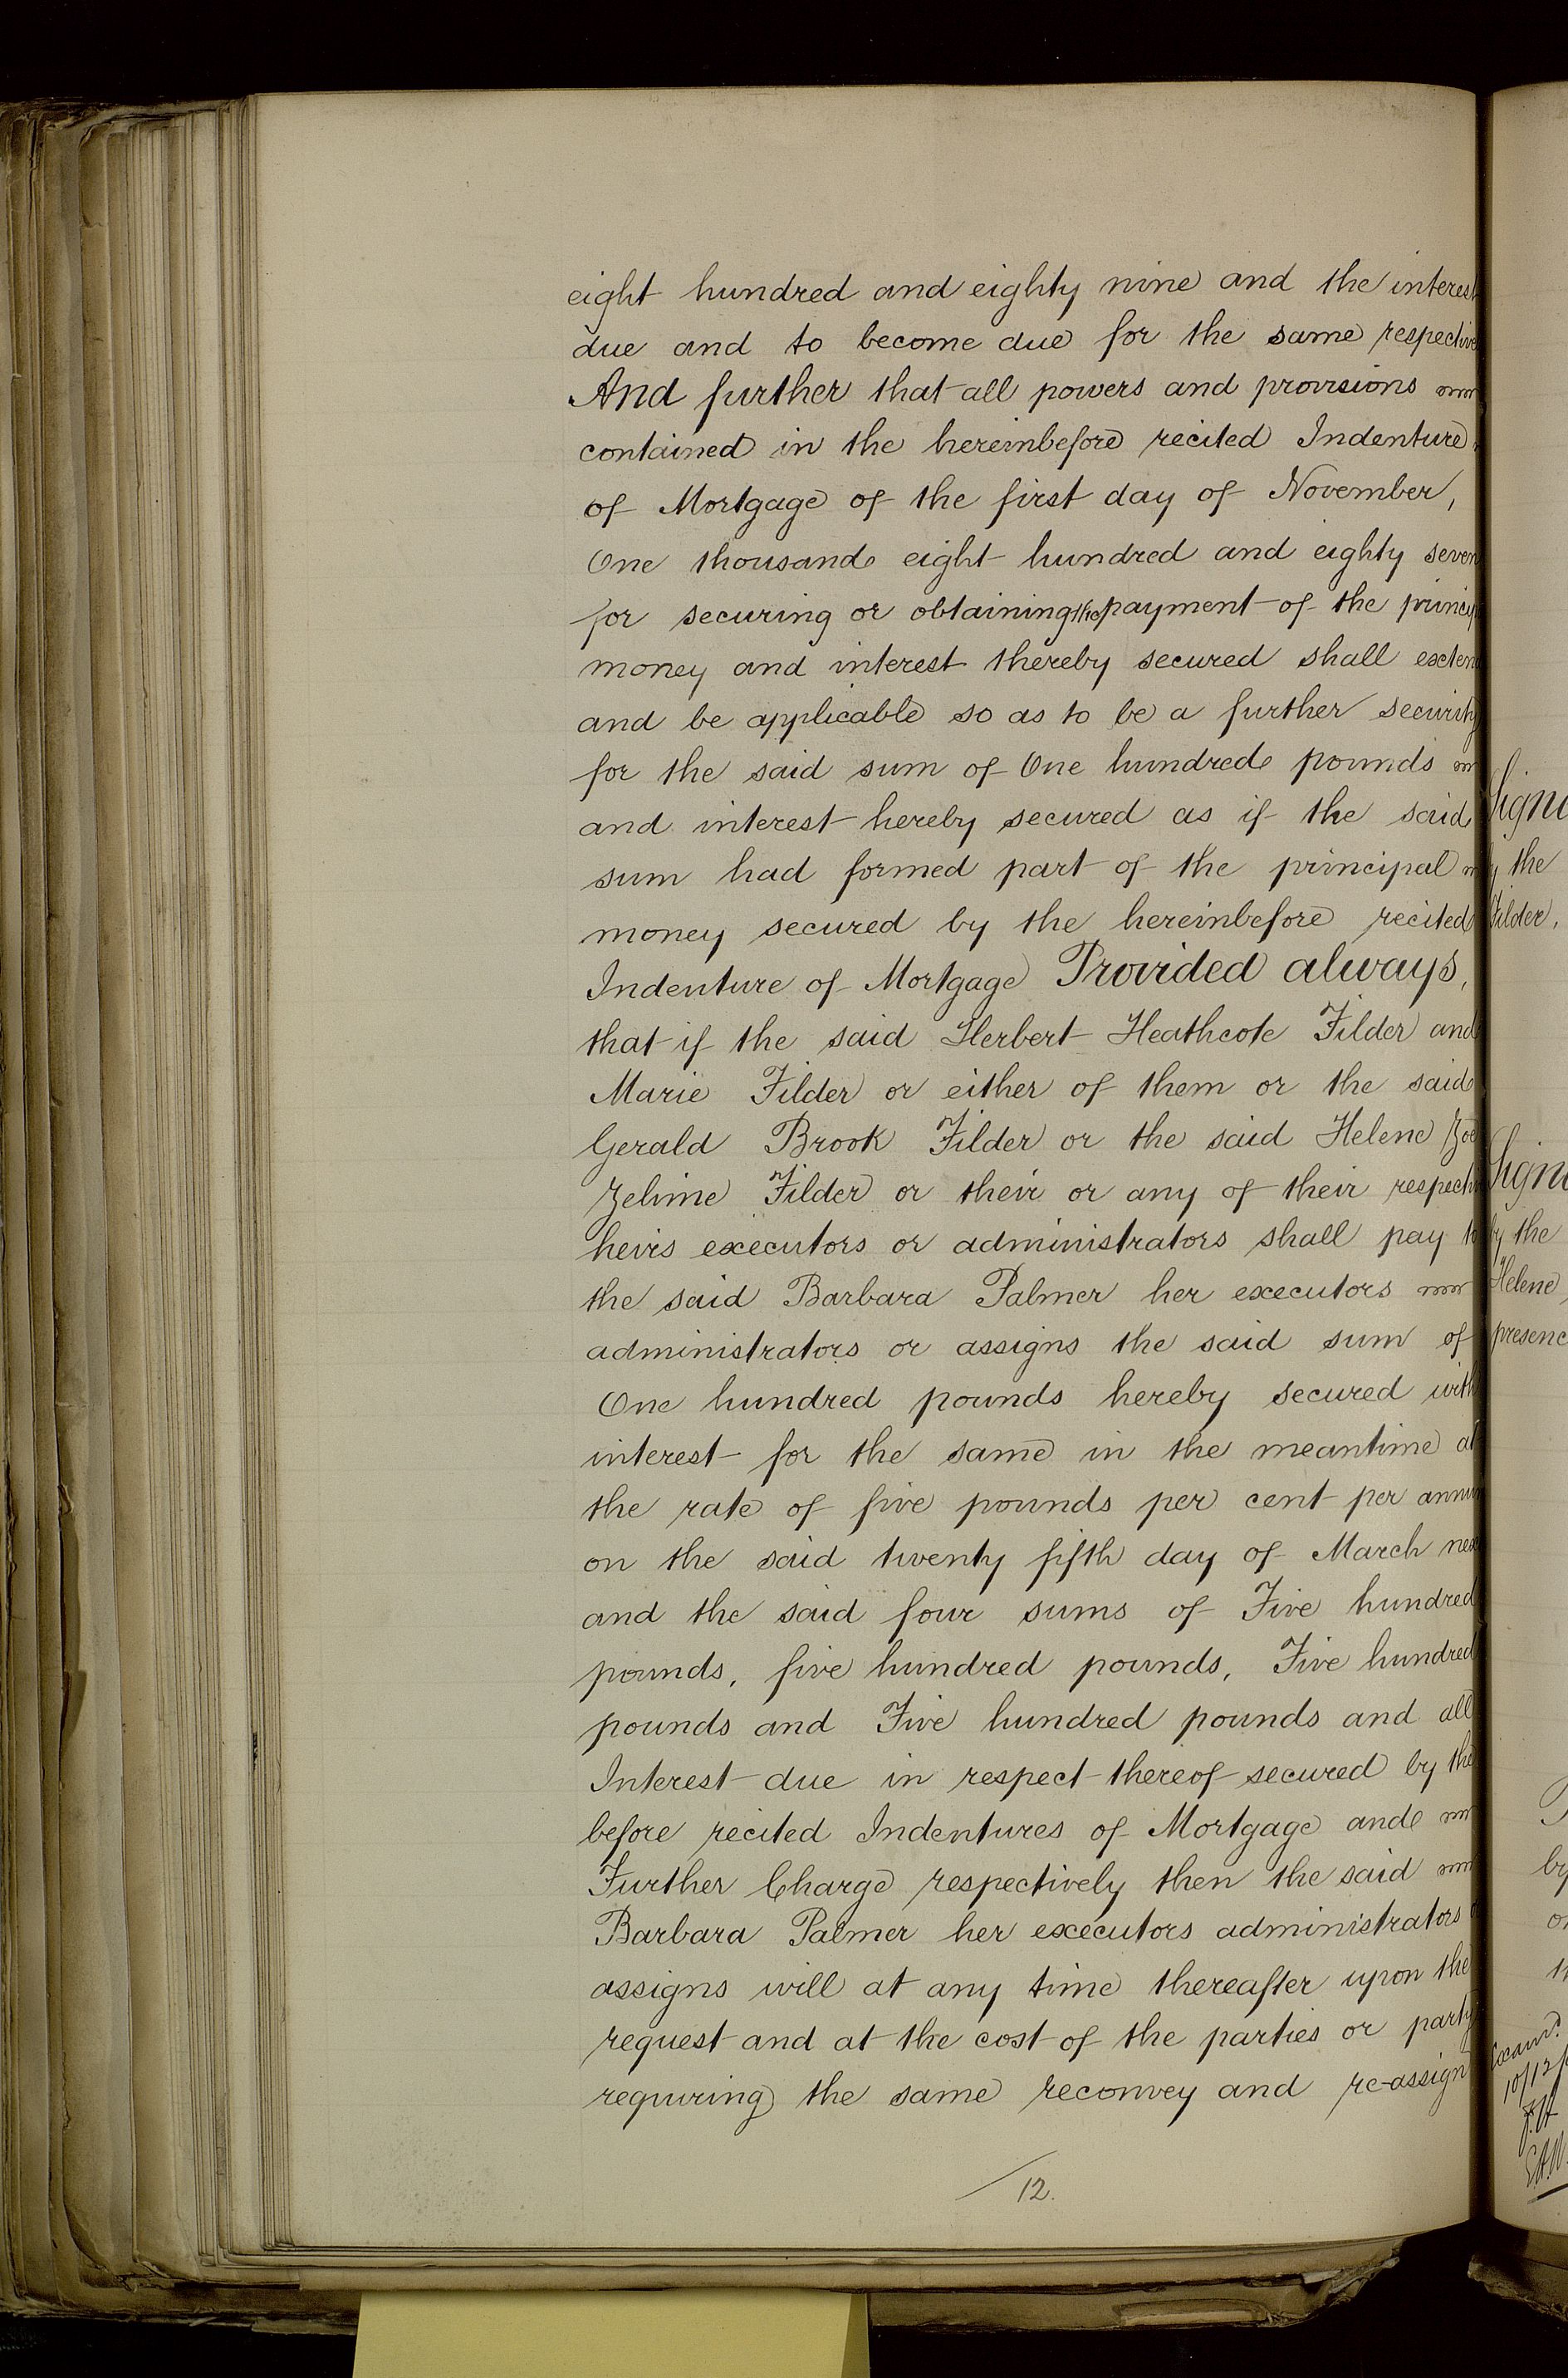 eight hundred and eighty nine and the interest
due and to become due for the same respective
And further that all powers and provisions
contained in the hereinbefore recited Indenture
of Mortgage of the first day of November,
One thousand eight hundred and eighty seven
for securing or obtaining the payment of the princip
money and interest thereby secured shall exten
and be applicable so as to be a further security
for the said sum of One hundred pounds
and interest hereby secured as if the said
sum had formed part of the principal
money secured by the hereinbefore recited
Indenture of Mortgage Provided always,
that if the said Herbert Heathcote Filder and
Marie Filder or either of them or the said
Gerald Brook Filder or the said Helene Zoe
Zelime Filder or their or any of their respecti
heirs executors or administrators shall pay to
the said Barbara Palmer her executors
administrators or assigns the said sum of
One hundred pounds hereby secured with
interest for the same in the meantime at
the rate of five pounds per cent per annum
on the said twenty fifth day of March nex
and the said four sums of Five hundred
pounds, five hundred pounds, Five hundred
pounds and Five hundred pounds and all
Interest due in respect thereof secured by the
before recited Indentures of Mortgage and
Further Charge respectively then the said
Barbara Palmer her executors administrators
assigns will at any time thereafter upon the
request and at the cost of the parties or party
requiring the same reconvey and re-assign
12.
Signe
by the
Filder,
Signe
by the
Helene
presenc
by
Examd.
10/12/